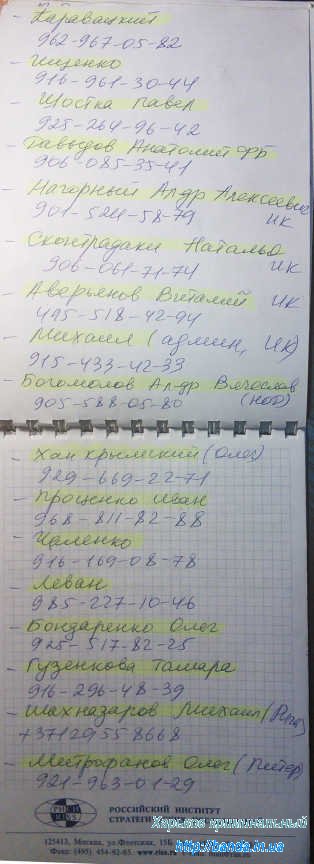 - Каравацкий
962-967-05-82
- Ищенко
916-961-30-44
- Шостка Павел
925-264-96-42
- Давыдов Анатолий ФБ
906-085-35-41
- Нагорный Ал-др Алексеевич
901-524-58-79 ИК
- Сконтрадаки Наталья
906-061-71-74 ИК
- Аверьянов Виталий ИК
495-518-42-94
- Михаил (админ, ИК)
915-433-42-33
- Богомолов Ал-др Вячеслав
905-588-05-80 (НОД)
- Хан крымский (Олег)
929-669-22-71
- Проценко Иван
968-811-82-88
- Цаленко
916-169-08-78
- Леван
985-227-10-46
- Бондаренко Олег
925-517-82-25
- Гузенкова Тамара
916-296-48-39
- Шахназаров Михаил (Рига)
+37129558668
- Митрофанов Олег (Питер)
921-963-01-29
РИСИ
RISS
РОССИЙСКИЙ ИНСТИТУТ
СТРАТЕГИ
Харьков криминальный
125413, Москва, ул. Флотская, 15Б
Факс: (495) 454-92-65. www.riss.ru